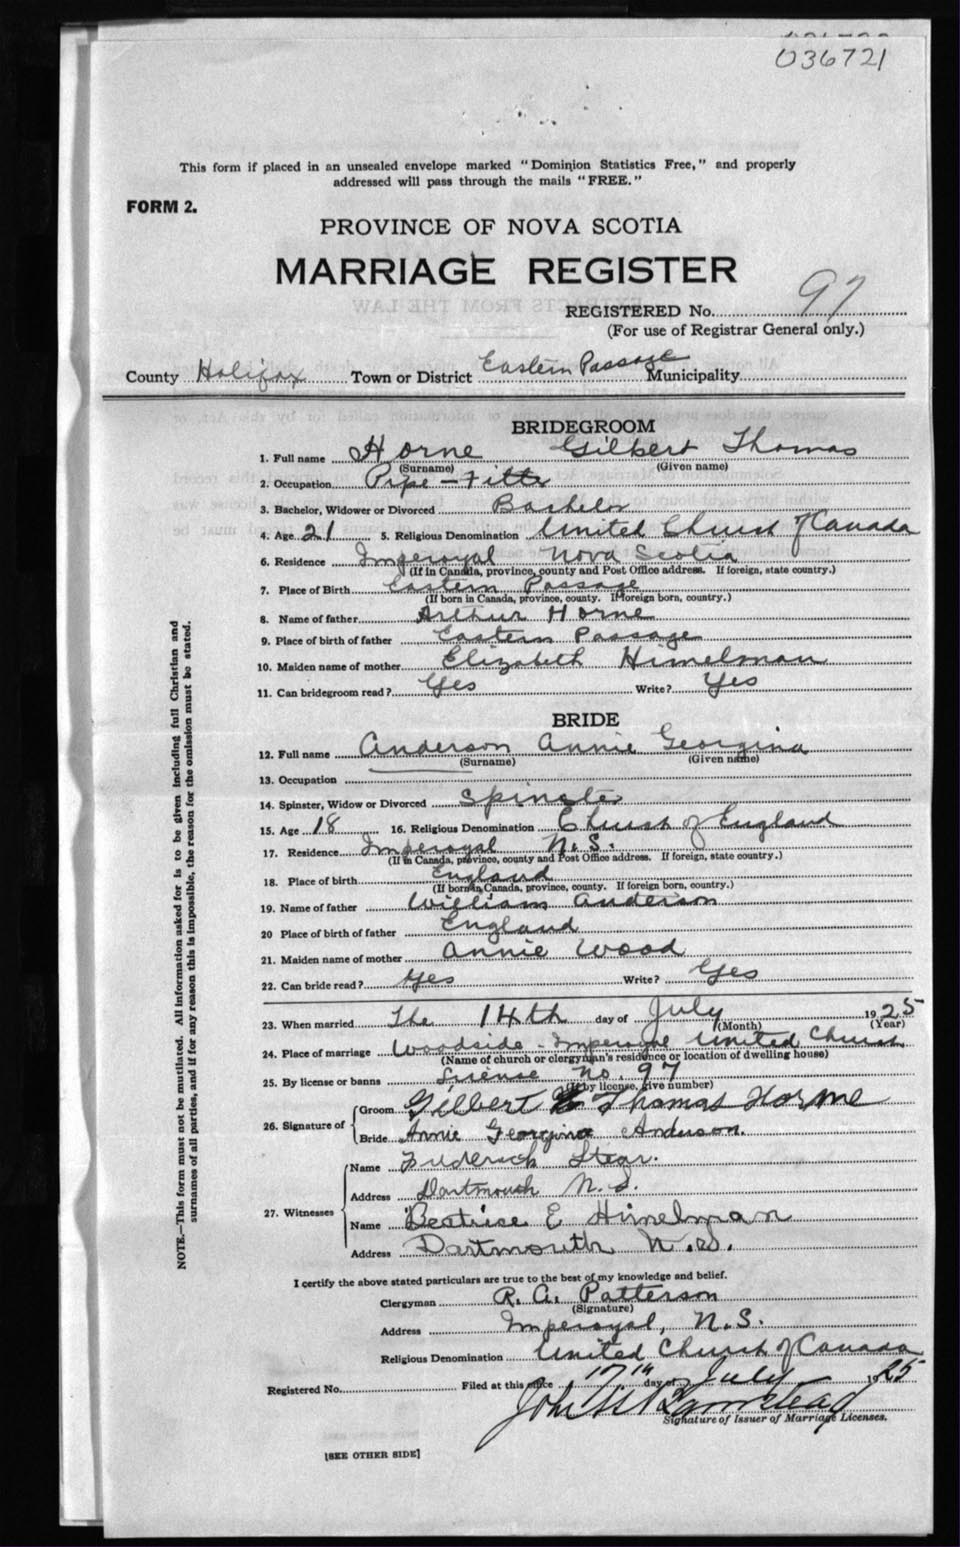 036721
This form if placed in an unsealed envelope marked "Dominion Statistics Free," and properly
addressed will pass through the mails "FREE."
FORM 2.
PROVINCE OF NOVA SCOTIA
MARRIAGE REGISTER
REGISTERED No. 97
(For use of Registrar General only.)
County Halifax Town or District Eastern Passage Municipality
BRIDEGROOM
1. Full name Horne Gilbert Thomas
(Surname) (Given name)
2. Occupation Pipe-Fitter
3. Bachelor, Widower or Divorced Bachelor
4. Age 21 5. Religious Denomination United Church of Canada
6. Residence Imperoyal Nova Scotia
(If in Canada, province, county and Post Office address. If foreign, state country.)
7. Place of Birth Eastern Passage
(If born in Canada, province, county. If foreign born, country.)
8. Name of father Arthur Horne
9. Place of birth of father Eastern Passage
10. Maiden name of mother Elizabeth Himelman
11. Can bridegroom read? Yes Write? Yes
BRIDE
12. Full name Anderson Annie Georgina
(Surname) (Given name)
13. Occupation
14. Spinster, Widow or Divorced Spinster
15. Age 18 16. Religious Denomination Church of England
17. Residence Imperoyal N.S.
(If in Canada, province, county and Post Office address. If foreign, state country.)
18. Place of birth England
(If born in Canada, province, county. If foreign born, country.)
19. Name of father William Anderson
20 Place of birth of father England
21. Maiden name of mother Annie Wood
22. Can bride read? Yes Write? Yes
23. When married The 14th day of July 1925
(Month) (Year)
24. Place of marriage Woodside - Imperoyal United Church
(Name of church or clergyman's residence or location of dwelling house)
25. By license or banns License No. 97
(If by license, give number)
26. Signature of Groom Gilbert Thomas Horne
Bride Annie Georgina Anderson.
27. Witnesses
Name Frederick
Address Dartmouth N.S.
Name Beatrice E Himelman
Address Dartmouth N.S.
I certify the above stated particulars are true to the best of my knowledge and belief.
Clergyman R. A. Patterson
(Signature)
Address Imperoyal, N.S.
Religious Denomination United Church of Canada
Registered No. Filed at this office 17th day of July 1925
John
Signature of Issuer of Marriage Licenses.
[SEE OTHER SIDE]
NOTE.—This form must not be mutilated. All information asked for is to be given including full Christian and
surnames of all parties, and if for any reason this is impossible, the reason for the omission must be stated.